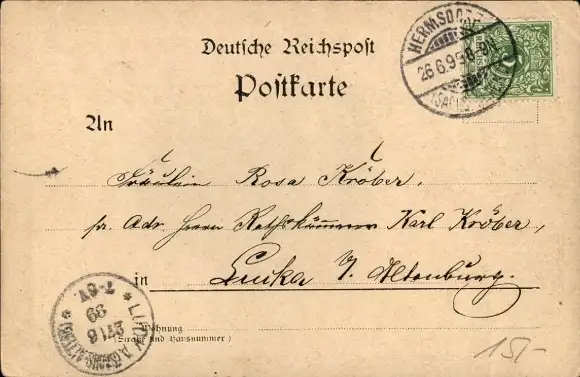 Deutsche Reichspost
Postkarte
HERMSDORF
26.6.99 8-9N
An
Fräulein Rosa Kröber,
pr. Adr. Herrn Rathskämmerer Karl Kröber,
in Lucka S. Altenburg.
LUCKA
7-8V
27/6
99
Wohnung
(Straße und Hausnummer)
15/-